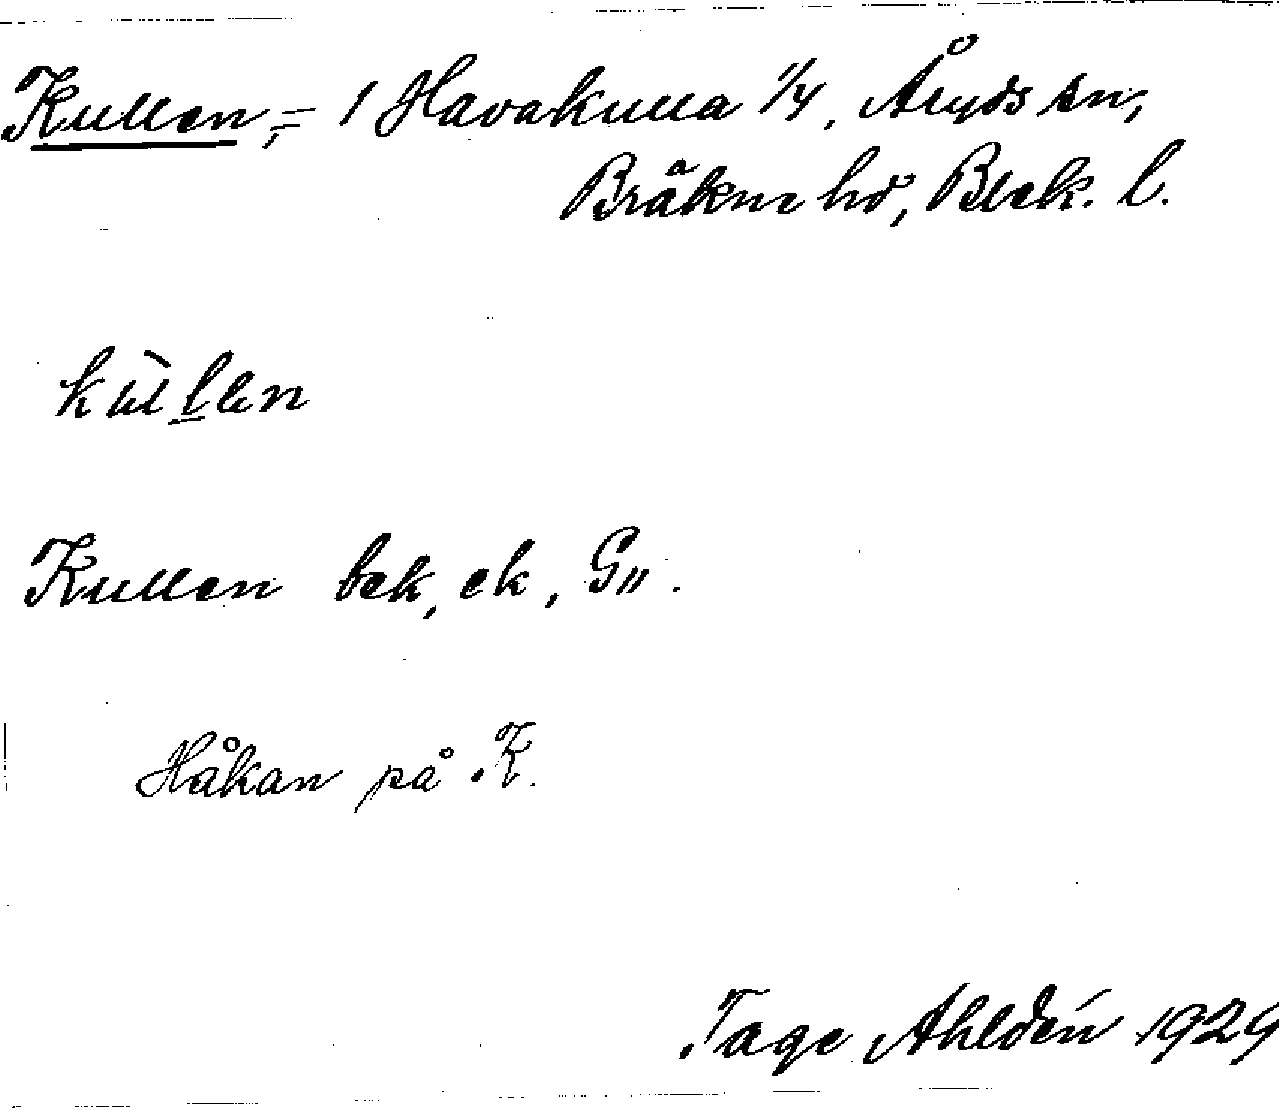 Kullen, = 1 Havakulla 1/4, Åryds sn,
Bräkne hd, Blek. l.
kùllen
Kullen bek, ek, G".
Håkan på K.
Tage Ahldén 1929